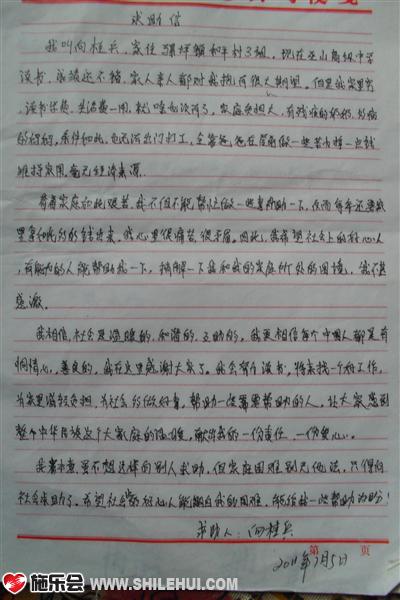 求助信
我叫向桂兵,家住骡坪镇和平村3组,现在巫山高级中学
读书,成绩还不错,家人亲人都对我抱有很大期望。但是我家里穷
读书学费、生活费一周,就 没有了,家庭负担大,有残疾的奶奶,
的妈妈,条件如此,也无法出门打工,全靠爸爸在屋前做一些苦力挣一点钱
维持家用,毫无经济来源。
看着家庭如此艰苦,我不但不能帮忙做一些事帮助一下,反而每年还要家
里拿如此多的钱出来。我心里很痛苦,很矛盾。因此,我希望社会上的好心人
,有能力的人能帮助我一下,缓解一下我和我的家庭所处的困境,我不甚
感激。
我相信,社会是温暖的,和谐的,互助的,我更相信每个中国人都是有
同情心,善良的,我在这里感谢大家了。我会努力读书,将来找一个好工作,
为家里减轻负担,为社会多做好事,帮助一些需要帮助的人,让大家感到
整个中华民族这个大家庭的温暖,献出我的一份责任,一份爱心。
我 ,虽不想这样向别人求助,但家庭困难别无他法,只得向
社会求助了。希望社会的好心人能 我的困难,能给我一些帮助为盼!
求助人:向桂兵
2011年7月5日
第 页
施乐会 WWW.SHILEHUI.COM